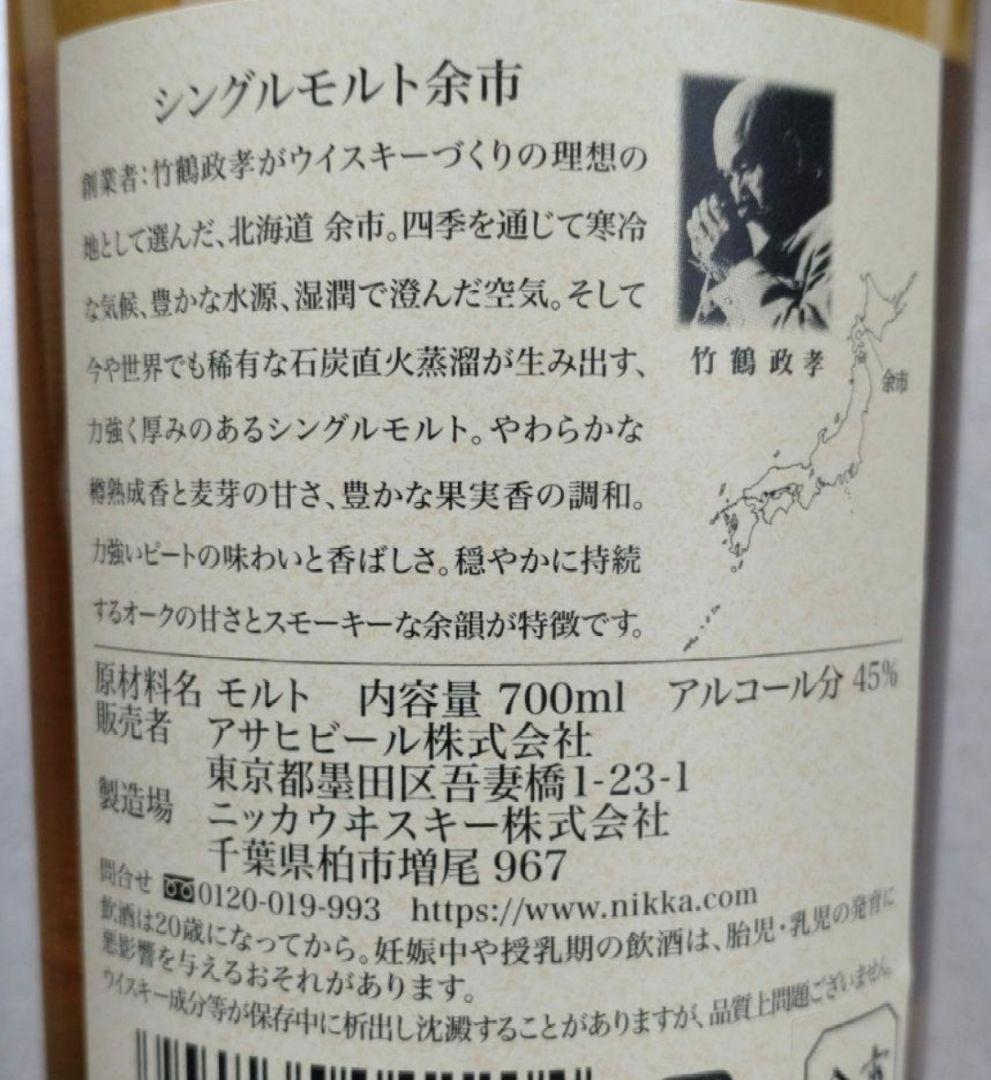 シングルモルト余市
創業者:竹鶴政孝がウイスキーづくりの理想の
地として選んだ、北海道 余市。四季を通じて寒冷
な気候、豊かな水源、湿潤で澄んだ空気。そして
今や世界でも稀有な石炭直火蒸溜が生み出す、
力強く厚みのあるシングルモルト。やわらかな
樽熟成香と麦芽の甘さ、豊かな果実香の調和。
力強いピートの味わいと香ばしさ。穏やかに持続
するオークの甘さとスモーキーな余韻が特徴です。
竹鶴政孝
余市
原材料名 モルト 内容量 700ml アルコール分 45%
販売者 アサヒビール株式会社
東京都墨田区吾妻橋1-23-1
製造場 ニッカウヰスキー株式会社
千葉県柏市増尾 967
問合せ 0120-019-993 https://www.nikka.com
飲酒は20歳になってから。妊娠中や授乳期の飲酒は、胎児・乳児の発育に
悪影響を与えるおそれがあります。
ウイスキー成分等が保存中に析出し沈澱することがありますが、品質上問題ございません。